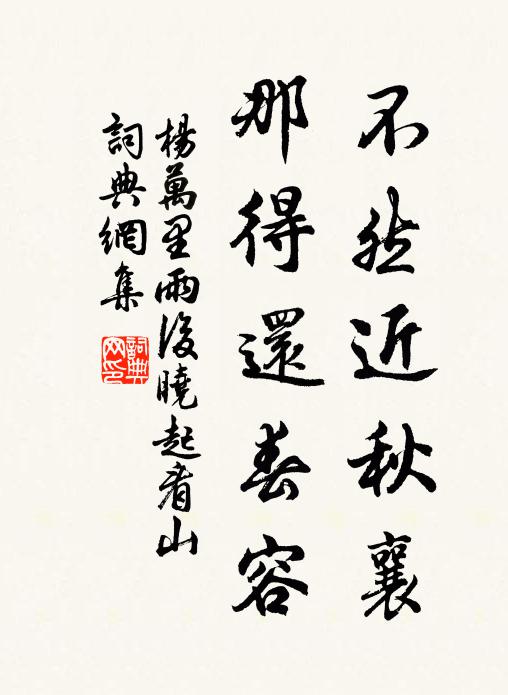 不然近秋襄
那得還春容
楊萬里雨後曉起看山
詞典網集
詞典網印